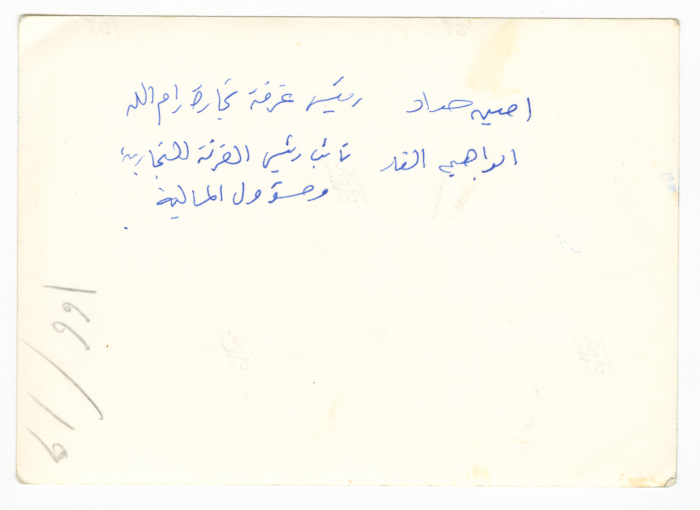 امين حداد رئيس غرفة تجارة رام الله
ابراهيم الفار نائب رئيس الغرفة التجارية
ومسؤول المالية